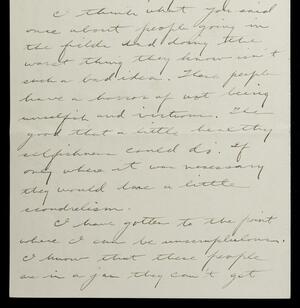 I think what you said
once about people going in
the fields and doing the
worst thing they know isn't
such a bad idea. These people
have a horror of not being
unselfish and virtuous. The
good that a little healthy
selfishness could do. If
only where it was necessary
they would have a little
scondrelism.
I have gotten to the point
where I can be unscrupulous.
I know that these people
are in a jam they can't get